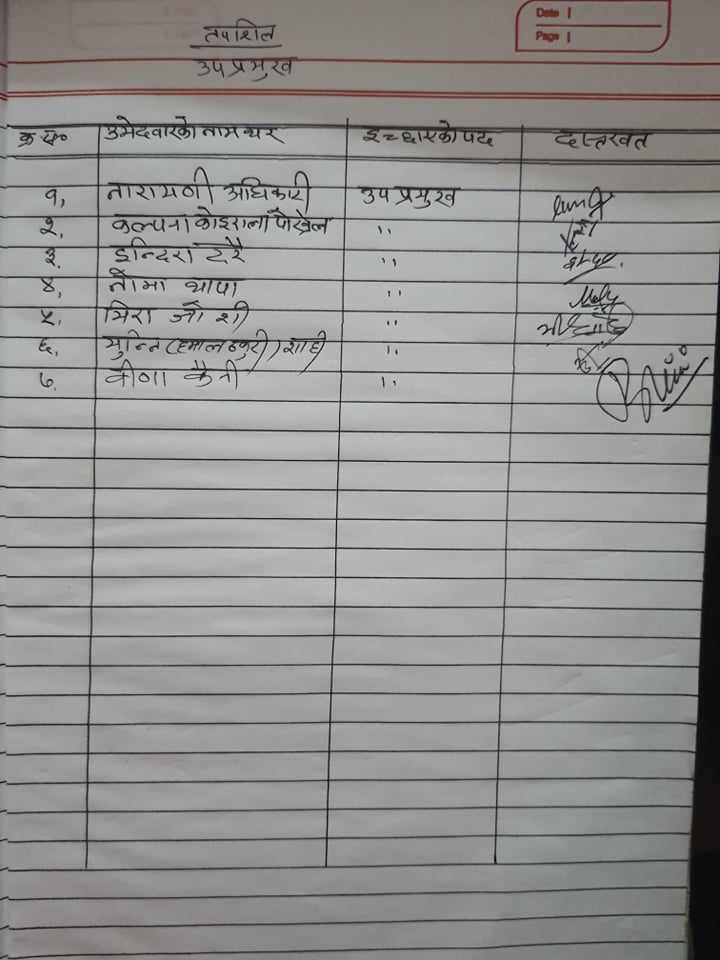 तपशिल
Date
Page
उपप्रमुख
क्र.सं० उमेदवारको नाम थर इच्छाएको पद दस्तखत
१, तारामणी अधिकारी उपप्रमुख
२, कल्पना कोइराला पौख्रेल ,,
३. इन्दिरा ,,
४, थापा ,,
५. मिरा जोशी ,,
६. (हमाल ठकुरी) शाही ,,
७. वीणा ,,